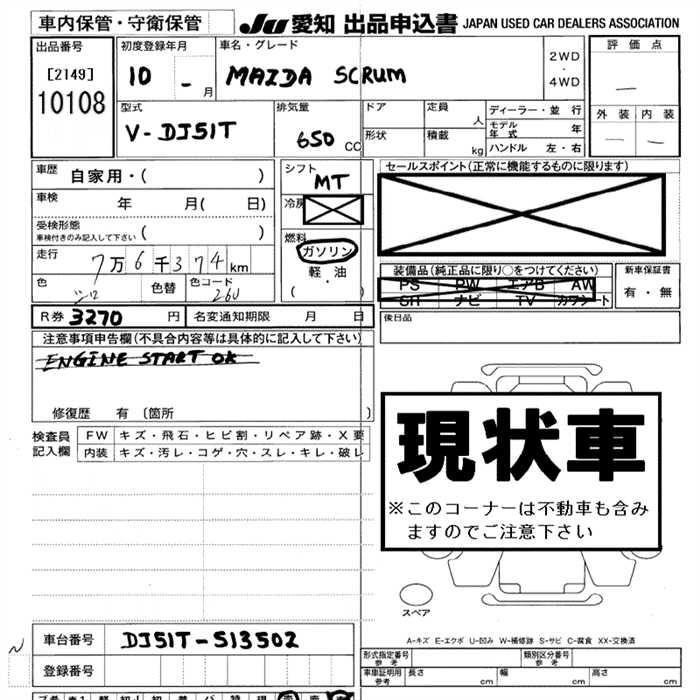 車内保管・守衛保管 JU 愛知 出品申込書 JAPAN USED CAR DEALERS ASSOCIATION
出品番号 初度登録年月 車名・グレード 評価点
[2149] 10 - 月 MAZDA SCRUM 2WD・4WD —
10108
型式 排気量 ドア 定員 人 ディーラー・並行 外装 内装
V-DJ51T 650 CC 形状 積載 kg モデル年式 年 — —
ハンドル 左・右
車歴 自家用・( ) シフト MT セールスポイント(正常に機能するものに限ります)
車検 年 月( 日) 冷房
受検形態 車検付きのみ記入して下さい ( ) 燃料
走行 7万6千374km ガソリン 装備品(純正品に限り○をつけてください) 新車保証書
軽・油 PS PW エアB AW 有・無
色 シロ 色替 色コード 26U ( ) SR ナビ TV カワシート
R券 3270 円 名変通知期限 月 日 後日品
注意事項申告欄(不具合内容等は具体的に記入して下さい)
ENGINE START OK
修復歴 有 (箇所 )
検査員 FW キズ・飛石・ヒビ割・リペア跡・X要
記入欄 内装 キズ・汚レ・コゲ・穴・スレ・キレ・破レ
現状車
※このコーナーは不動車も含み
ますのでご注意下さい
スペア
A-キズ E-エクボ U-凹み W-補修跡 S-サビ C-腐食 XX-交換済
車台番号 DJ51T-513502 形式指定番号 参考 類別区分番号 参考
登録番号 車庫証明用 参考 長さ cm 幅 cm 高さ cm